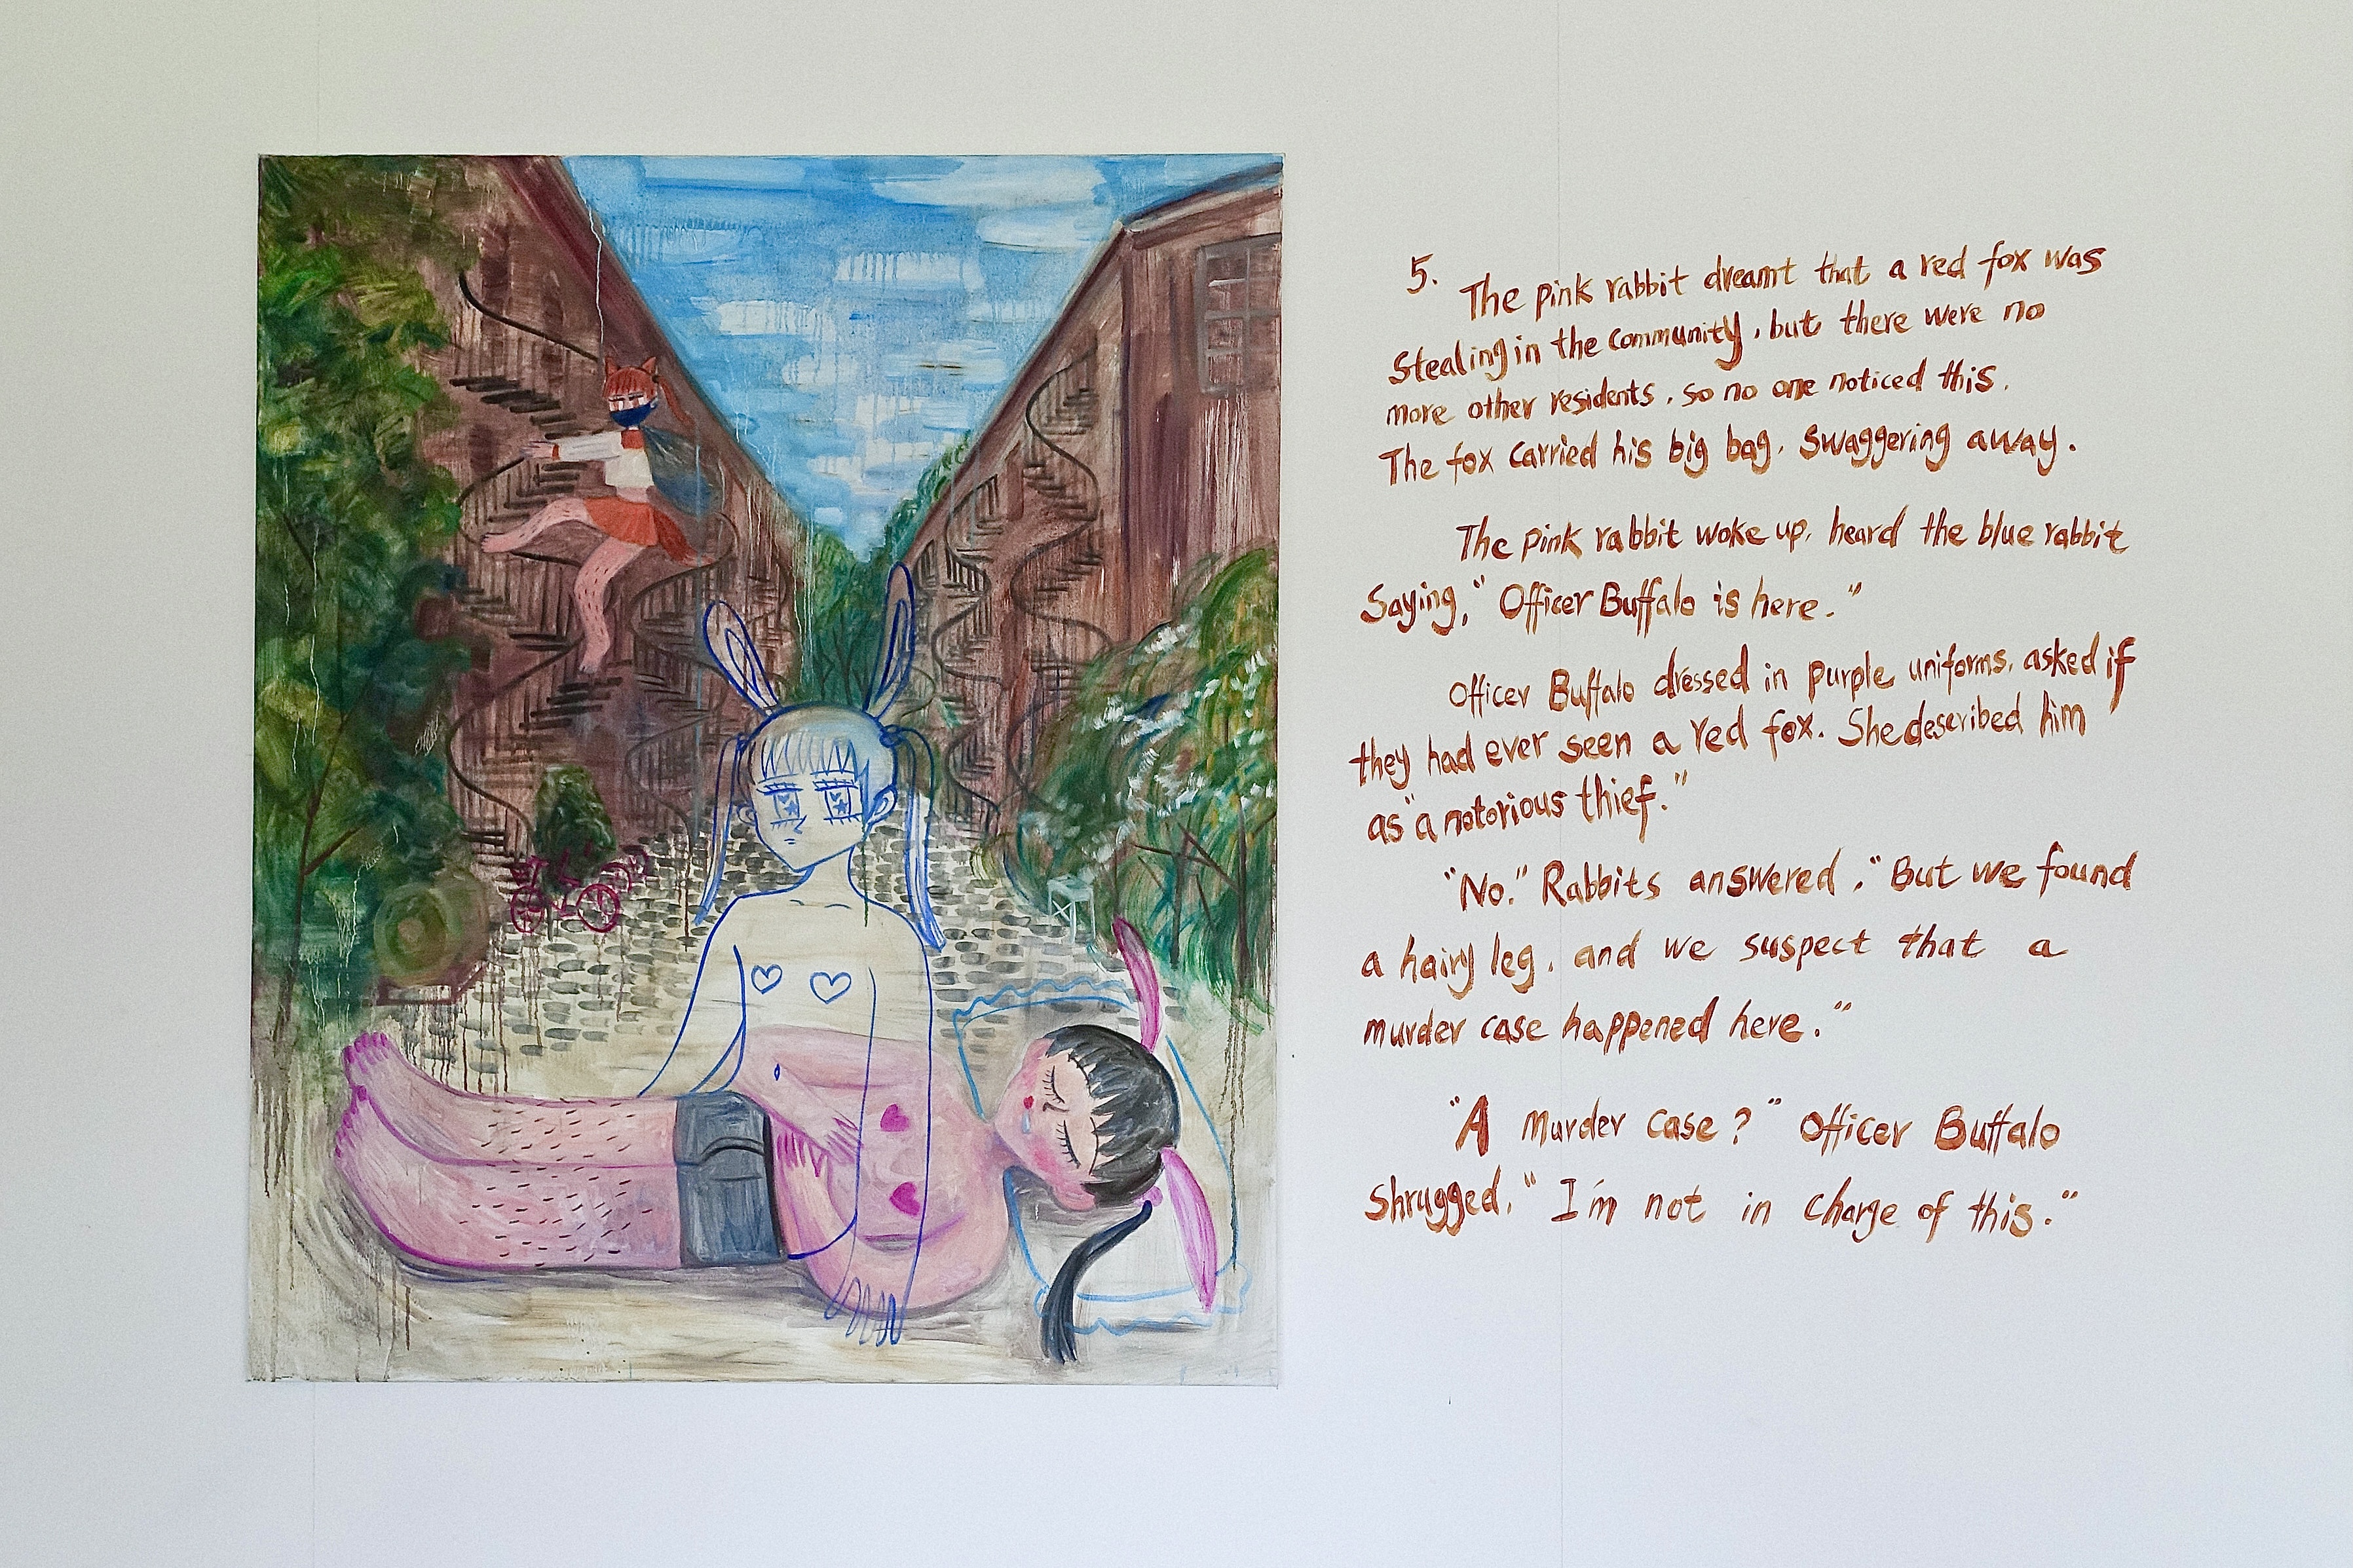 5. The pink rabbit dreamt that a red fox was
Stealing in the community, but there were no
more other residents, so no one noticed this.
The fox carried his big bag, swaggering away.
The pink rabbit woke up, heard the blue rabbit
Saying, "Officer Buffalo is here."
Officer Buffalo dressed in purple uniforms, asked if
they had ever seen a red fox. She described him
as "a notorious thief."
"No." Rabbits answered, "But we found
a hairy leg, and we suspect that a
murder case happened here."
"A murder case?" Officer Buffalo
Shrugged, "I'm not in charge of this."